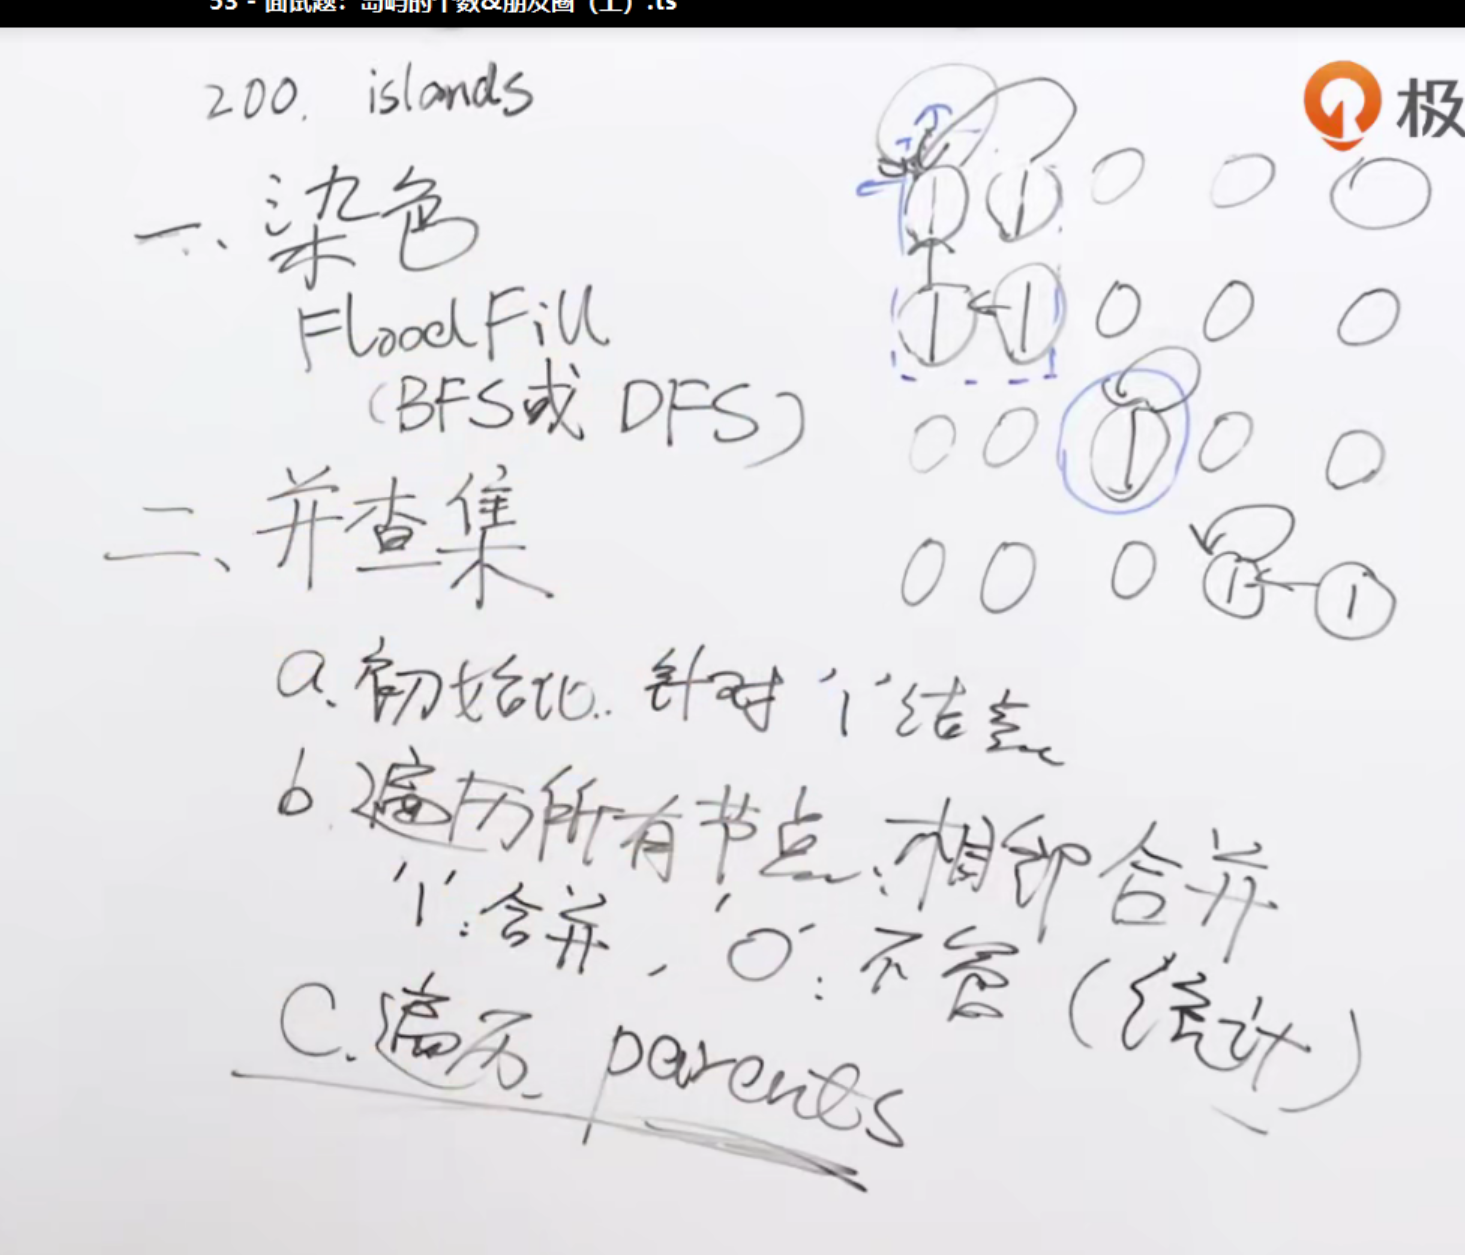 53 - 面试题：岛屿的个数&朋友圈（上）.ts
极
200. islands
一、染色
FloodFill
(BFS或 DFS)
二、并查集
a. 初始化. 针对'1'结点
b. 遍历所有节点、相邻合并
'1':合并, '0':不合 (统计)
c. 遍历 parents
1 1 0 0 0
1 1 0 0 0
0 0 1 0 0
0 0 0 1 1